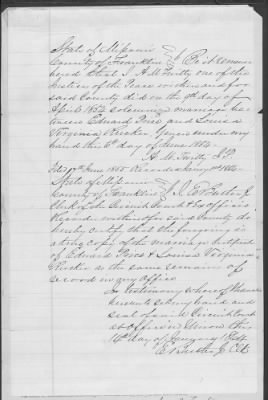 State of Missouri
County of Franklin } Be it remem
bered that I A. W. Twitty one of the
Justices of the Peace within and for
said County did on the 9th day of
April 1854 solemnize marriage be
tween Edward Price and Louisa
Virginia Rucker. Given under my
hand this 6th day of June 1854.
A. W. Twitty J.P.
Filed 17th June 1855 Recorded
State of Missouri
County of Franklin } I,
Clerk of the Circuit Court & Ex Officio
Recorder within & for said County do
hereby certify that the foregoing is
a true copy of the marriage certificate
of Edward Price & Louisa Virginia
Rucker as the same remains of
record in my Office
In testimony whereof I have
hereunto set my hand and
seal of said Circuit Court
at Office in Union this
14th day of January
Clk